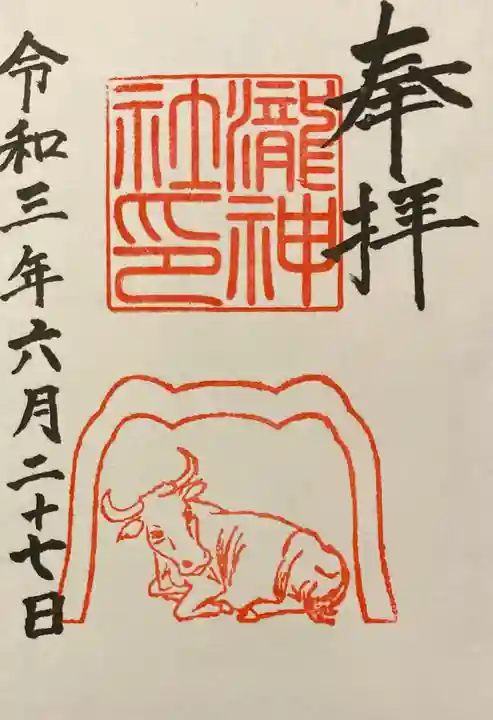 奉拝
瀧神
社印
令和三年六月二十七日